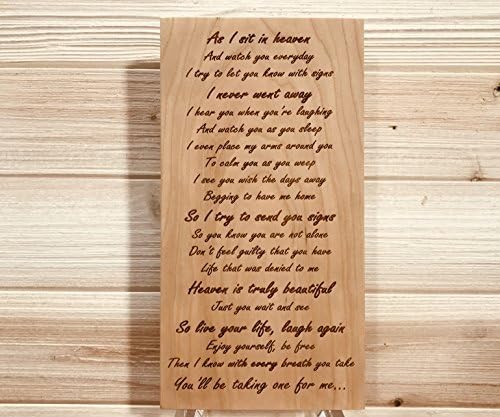 As I sit in heaven
And watch you everyday
I try to let you know with signs
I never went away
I hear you when you're laughing
And watch you as you sleep
I even place my arms around you
To calm you as you weep
I see you wish the days away
Begging to have me home
So I try to send you signs
So you know you are not alone
Don't feel guilty that you have
Life that was denied to me
Heaven is truly beautiful
Just you wait and see
So live your life, laugh again
Enjoy yourself, be free
Then I know with every breath you take
You'll be taking one for me...